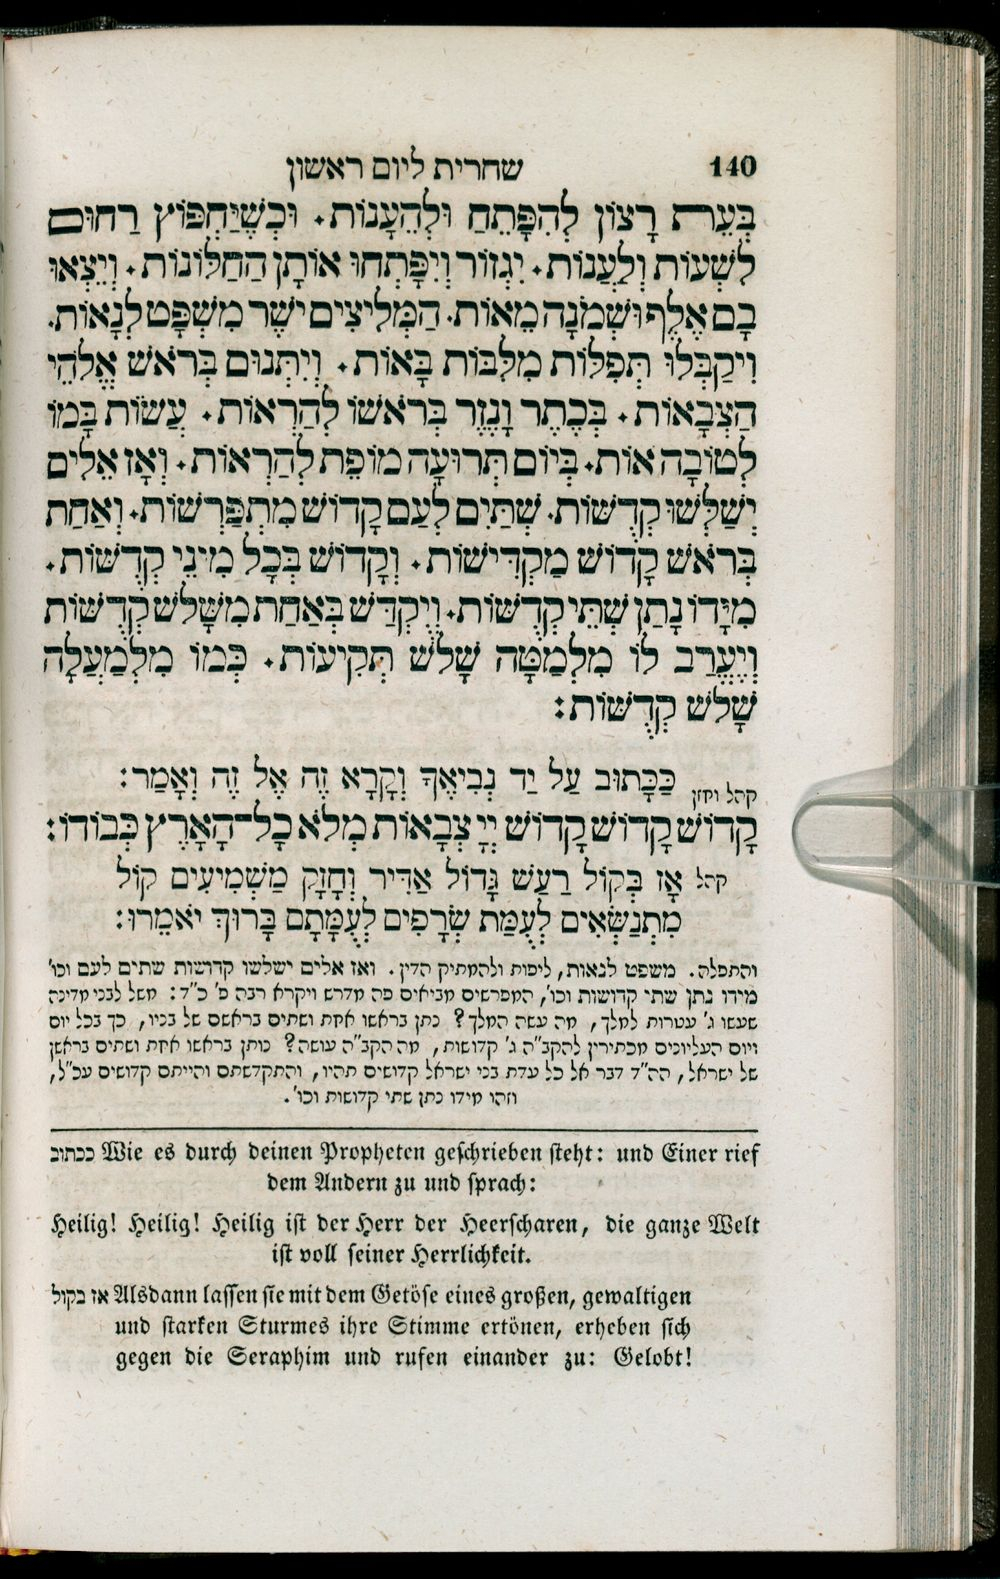 140 שחרית ליום ראשון
בְּעֵרֹת רָצוֹן לְהִפָּתֵחַ וּלְהֵעָנוֹת. וּכְשֶׁיַּחְפּוֹץ רַחוּם
לִשְׁעוֹת וְלַעֲנוֹת. יִגְזוֹר וְיִפָּתְחוּ אוֹתָן הַחַלּוֹנוֹת. וְיֵצְאוּ
בָם אֶלֶף וּשְׁמֹנָה מֵאוֹת. הַמְּלִיצִים יֹשֶׁר מִשְׁפָּט לְנָאוֹת.
וִיקַבְּלוּ תְּפִלּוֹת מִלִּבּוֹת בָּאוֹת. וְיִתְּנוּם בְּרֹאשׁ אֱלֹהֵי
הַצְּבָאוֹת. בְּכֶתֶר וָנֶזֶר בְּרֹאשׁוֹ לְהֵרָאוֹת. עֲשׂוֹת בָּמוֹ
לְטוֹבָה אוֹת. בְּיוֹם תְּרוּעָה מוֹפֵת לְהַרְאוֹת. וְאָז אֵלִים
יְשַׁלְּשׁוּ קְדֻשּׁוֹת. שְׁתַּיִם לְעַם קָדוֹשׁ מִתְפָּרְשׁוֹת. וְאַחַת
בְּרֹאשׁ קָדוֹשׁ מַקְדִּישׁוֹת. וְקָדוֹשׁ בְּכָל מִינֵי קְדֻשּׁוֹת.
מִיָּדוֹ נָתַן שְׁתֵּי קְדֻשּׁוֹת. וְיִקְדַּשׁ בְּאַחַת מִשָּׁלֹשׁ קְדֻשּׁוֹת
וְיֶעֱרַב לוֹ מִלְמַטָּה שָׁלֹשׁ תְּקִיעוֹת. כְּמוֹ מִלְמַעְלָה
שָׁלֹשׁ קְדֻשּׁוֹת:
קהל וחזן כַּכָּתוּב עַל יַד נְבִיאֶךָ וְקָרָא זֶה אֶל זֶה וְאָמַר:
קָדוֹשׁ קָדוֹשׁ קָדוֹשׁ יְיָ צְבָאוֹת מְלֹא כָל־הָאָרֶץ כְּבוֹדוֹ:
קהל אָז בְּקוֹל רַעַשׁ גָּדוֹל אַדִּיר וְחָזָק מַשְׁמִיעִים קוֹל
מִתְנַשְּׂאִים לְעֻמַּת שְׂרָפִים לְעֻמָּתָם בָּרוּךְ יֹאמֵרוּ:
והתפלה. משפט לנאות, ליפות ולהמתיק הדין. ואז אלים ישלשו קדושות שתים לעם וכו'
מידו נתן שתי קדושות וכו', המפרשים מביאים פה מדרש ויקרא רבה פ' כ"ד: משל לבני מדינה
שעשו ג' עטרות למלך, מה עשה המלך? נתן בראשו אחת ושתים בראשם של בניו, כך בכל יום
ויום העליונים מכתירין להקב"ה ג' קדושות, מה הקב"ה עושה? נותן בראשו אחת ושתים בראשן
של ישראל, הה"ד דבר אל כל עדת בני ישראל קדושים תהיו, והתקדשתם והייתם קדושים עכ"ל,
וזהו מידו נתן שתי קדושות וכו'.
ככתוב Wie es durch deinen Propheten geschrieben steht: und Einer rief
dem Andern zu und sprach:
Heilig! Heilig! Heilig ist der Herr der Heerscharen, die ganze Welt
ist voll seiner Herrlichkeit.
אז בקול Alsdann lassen sie mit dem Getöse eines großen, gewaltigen
und starken Sturmes ihre Stimme ertönen, erheben sich
gegen die Seraphim und rufen einander zu: Gelobt!